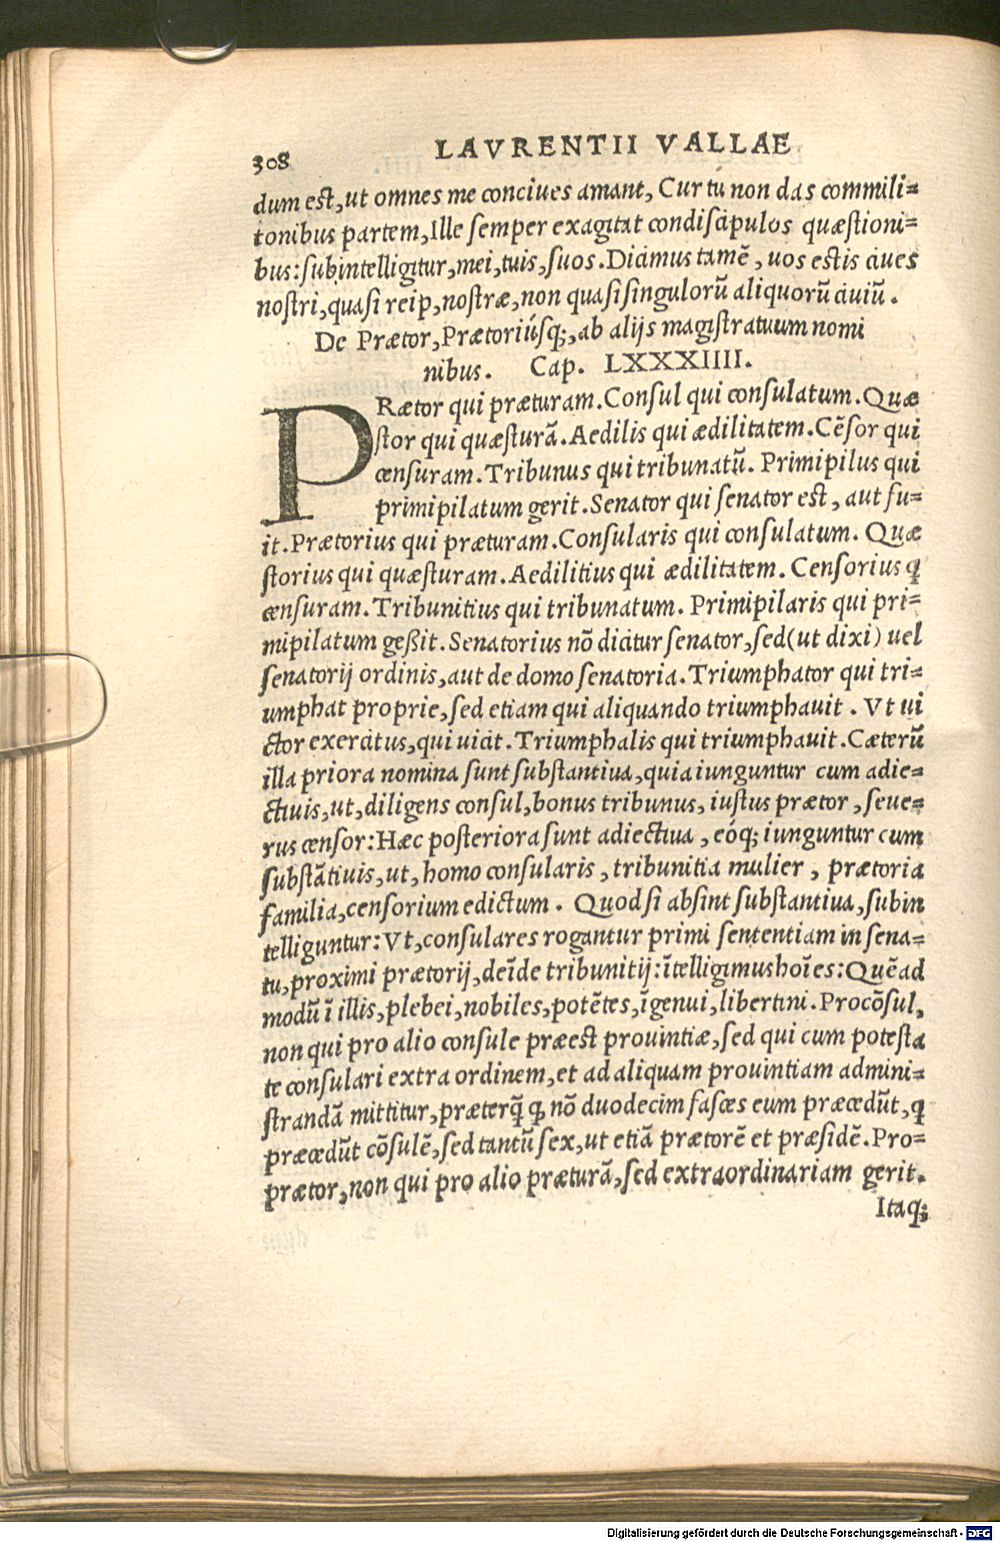 308 LAVRENTII VALLAE
dum est, ut omnes me conciues amant, Cur tu non das commili=
tonibus partem, Ille semper exagitat condiscipulos quæstioni=
bus: subintelligitur, mei, tuis, suos. Dicimus tamē, uos estis ciues
nostri, quasi reip, nostræ, non quasi singulorū aliquorū ciuiū.
De Prætor, Prætoriúsq;, ab alijs magistratuum nomi
nibus. Cap. LXXXIIII.
PRætor qui præturam. Consul qui consulatum. Quæ
stor qui quæsturā. Aedilis qui ædilitatem. Cēsor qui
censuram. Tribunus qui tribunatū. Primipilus qui
primipilatum gerit. Senator qui senator est, aut fu=
it. Prætorius qui præturam. Consularis qui consulatum. Quæ
storius qui quæsturam. Aedilitius qui ædilitatem. Censorius q̃
censuram. Tribunitius qui tribunatum. Primipilaris qui pri=
mipilatum geßit. Senatorius nō dicitur senator, sed (ut dixi) uel
senatorij ordinis, aut de domo senatoria. Triumphator qui tri=
umphat proprie, sed etiam qui aliquando triumphauit. Vt ui
ctor exercitus, qui uicit. Triumphalis qui triumphauit. Cæterū
illa priora nomina sunt substantiua, quia iunguntur cum adie=
ctiuis, ut, diligens consul, bonus tribunus, iustus prætor, seue=
rus censor: Hæc posteriora sunt adiectiua, eóq; iunguntur cum
substātiuis, ut, homo consularis, tribunitia mulier, prætoria
familia, censorium edictum. Quod si absint substantiua, subin
telliguntur: Vt, consulares rogantur primi sententiam in sena=
tu, proximi prætorij, deīde tribunitij: ītelligimus hoīes: Quēad
modū ī illis, plebei, nobiles, potētes, īgenui, libertini. Procōsul,
non qui pro alio consule præest prouintiæ, sed qui cum potesta
te consulari extra ordinem, et ad aliquam prouintiam admini=
strandā mittitur, præterq̃ q, nō duodecim fasces eum præcedūt, q̃
præcedūt cōsulē, sed tantū sex, ut etiā prætorē et præsidē. Pro=
prætor, non qui pro alio præturā, sed extraordinariam gerit.
Itaq;
Digitalisierung gefördert durch die Deutsche Forschungsgemeinschaft - DFG